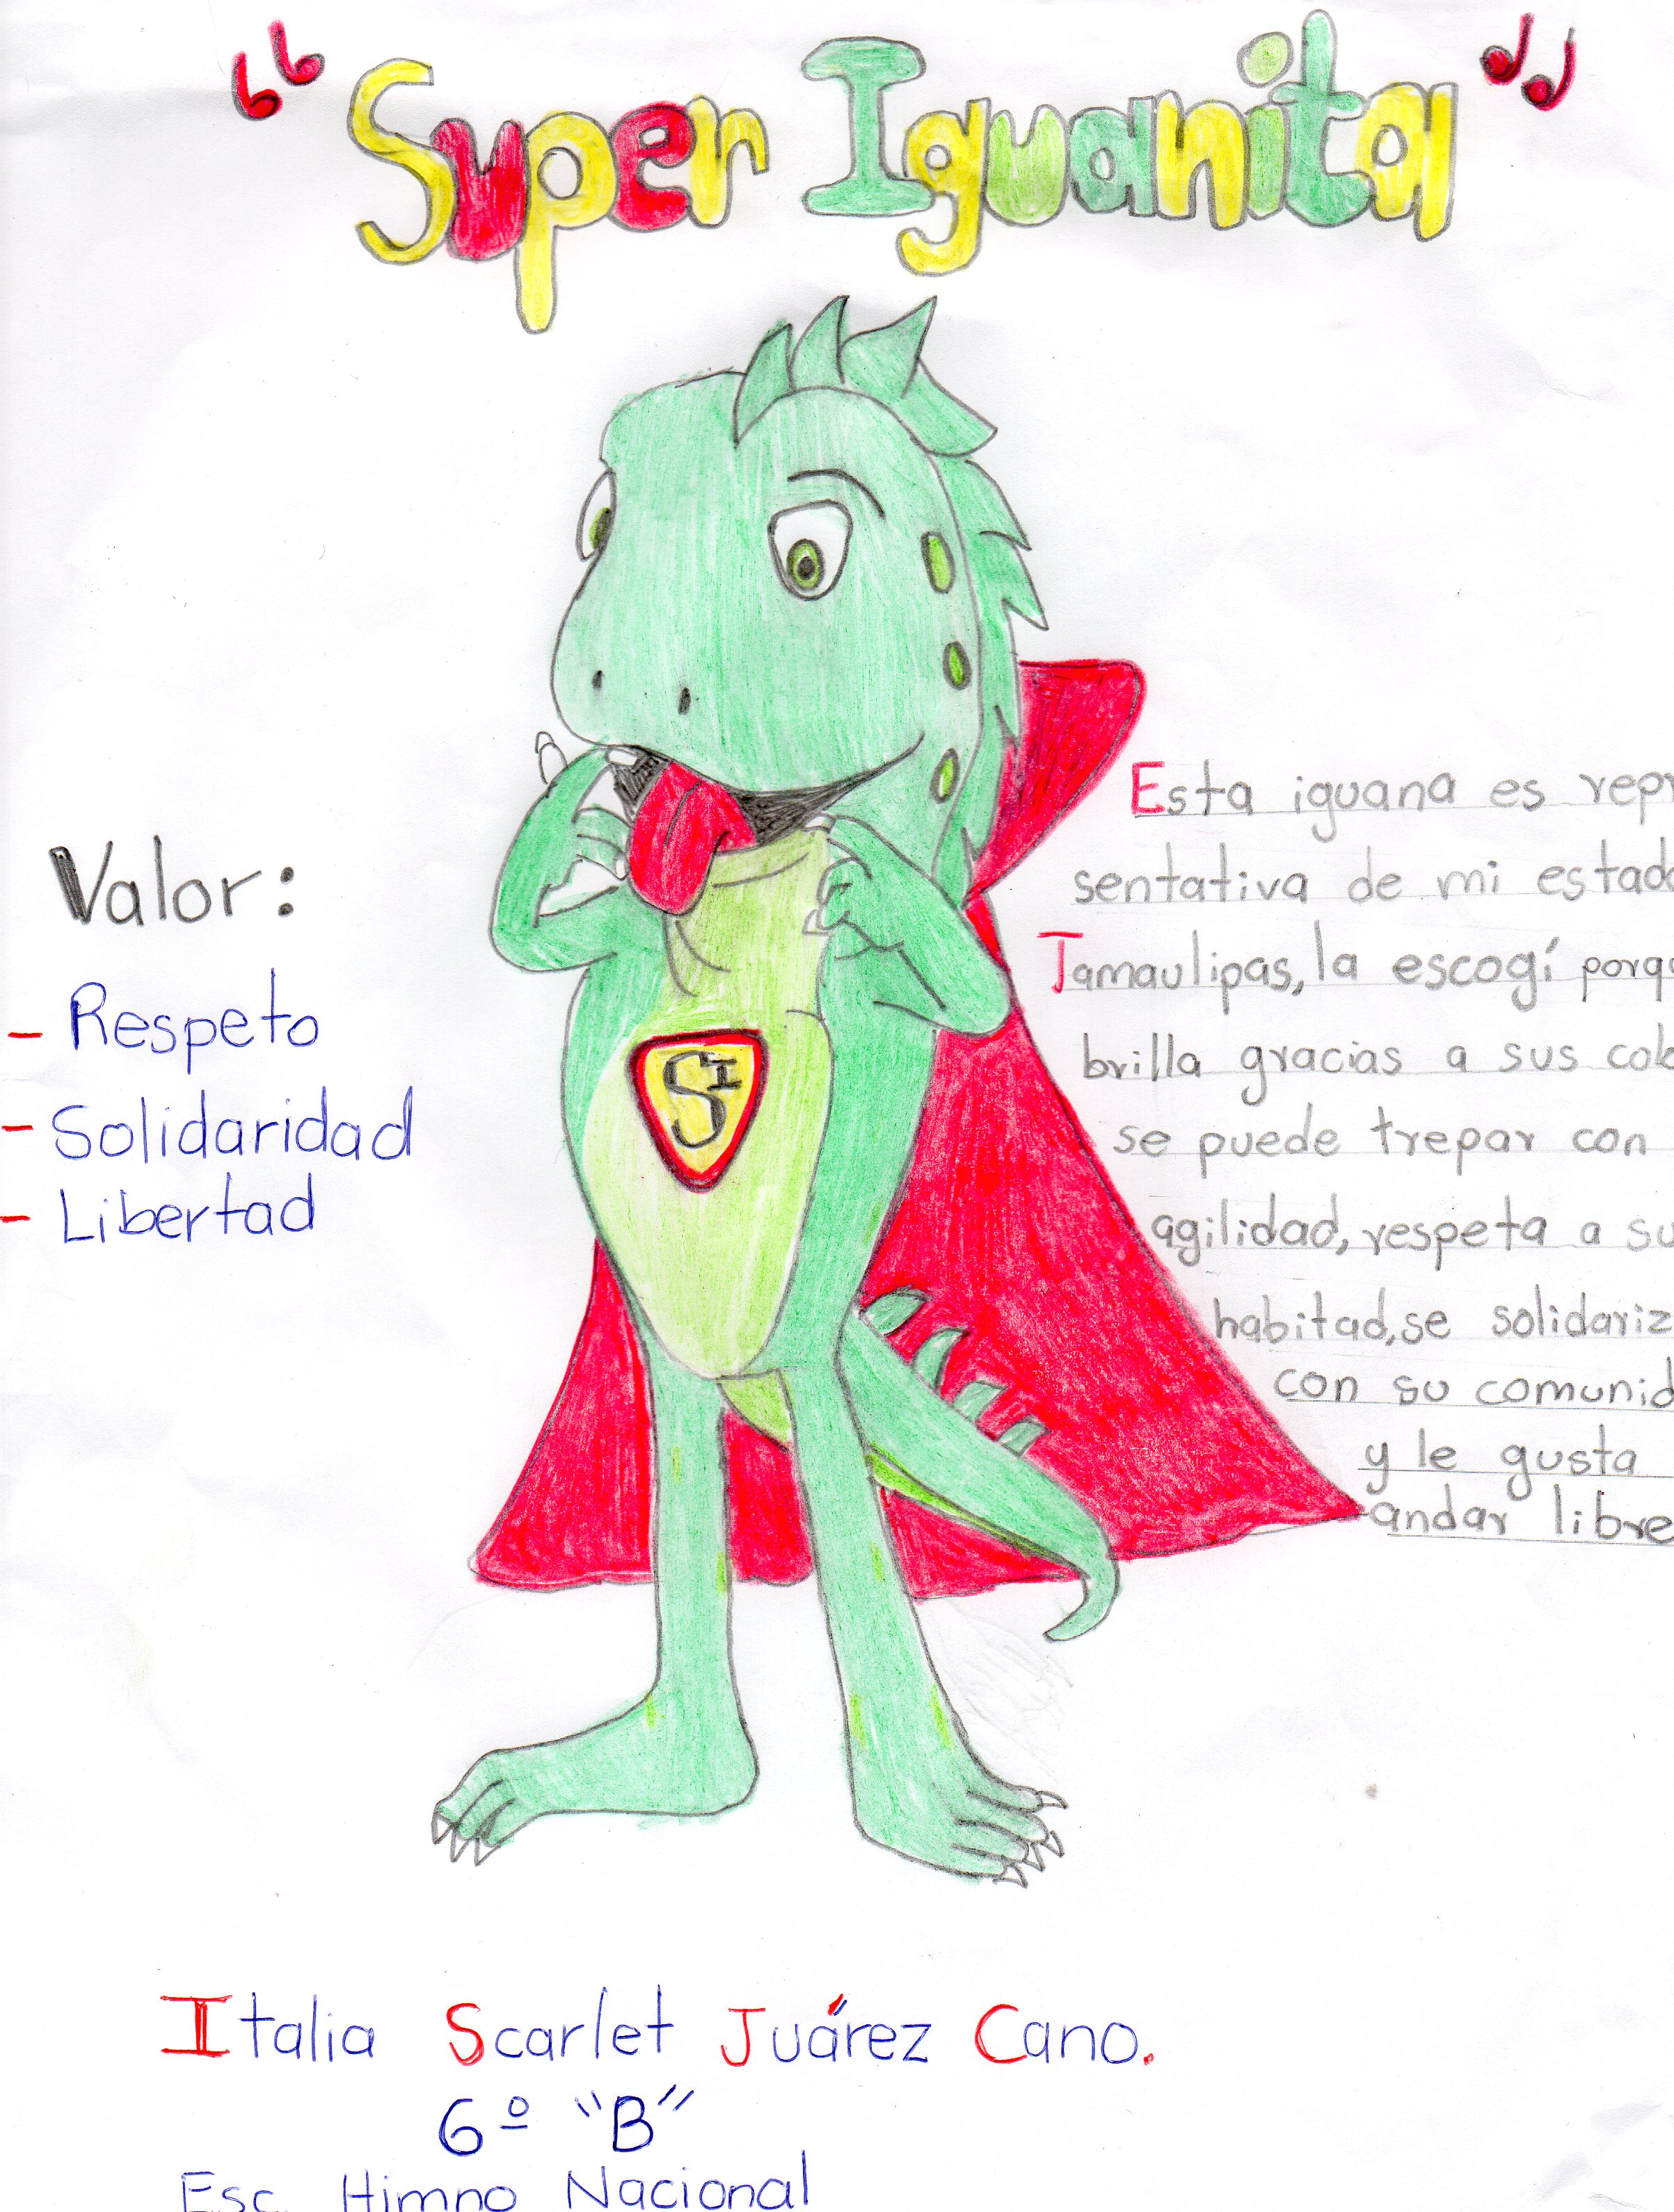 “Super Iguanita”
Valor:
- Respeto
- Solidaridad
- Libertad
Esta iguana es repr
sentativa de mi estado
Tamaulipas, la escogí porqu
brilla gracias a sus colo
se puede trepar con
agilidad, respeta a su
habitad, se solidariz
con su comunid
y le gusta
andar libre
SI
Italia Scarlet Juárez Cano.
6º "B"
Esc. Himno Nacional